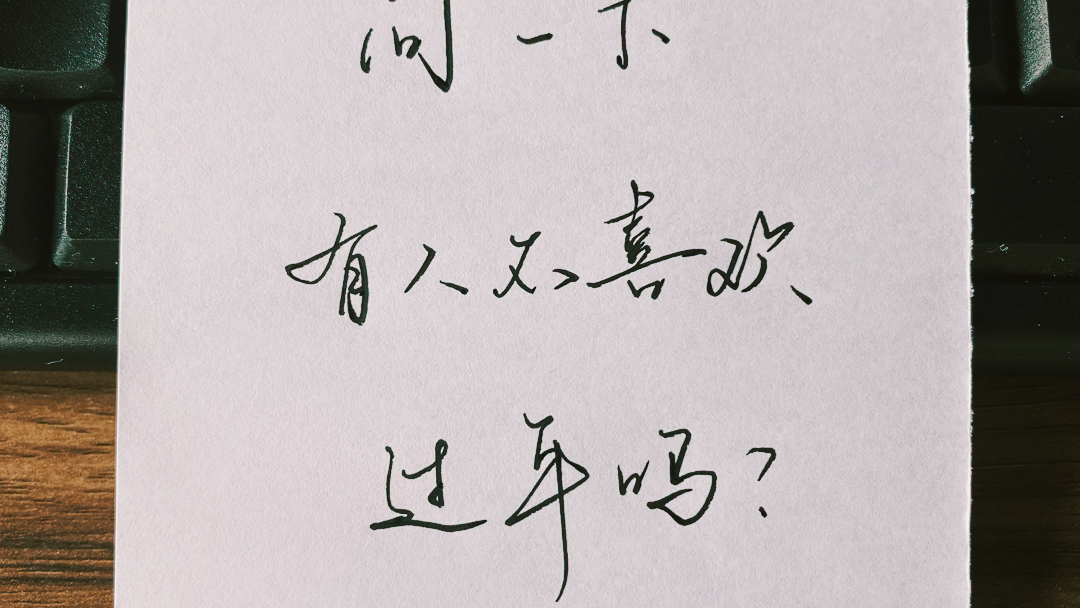 问一下
有人不喜欢
过年吗？